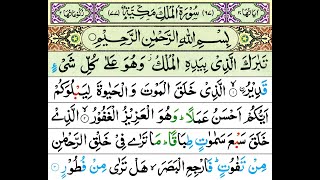 سُوْرَةُ الْمُلْكِ مَكِّيَّةٌ
بِسْمِ اللّٰهِ الرَّحْمٰنِ الرَّحِيْمِ
تَبٰرَكَ الَّذِیْ بِیَدِهِ الْمُلْكُ وَهُوَ عَلٰی كُلِّ شَیْءٍ
قَدِیْرُ الَّذِیْ خَلَقَ الْمَوْتَ وَالْحَیٰوةَ لِیَبْلُوَكُمْ
اَیُّكُمْ اَحْسَنُ عَمَلًا وَهُوَ الْعَزِیْزُ الْغَفُوْرُ الَّذِیْ
خَلَقَ سَبْعَ سَمٰوٰتٍ طِبَاقًا مَا تَرٰی فِیْ خَلْقِ الرَّحْمٰنِ
مِنْ تَفٰوُتٍ فَارْجِعِ الْبَصَرَ هَلْ تَرٰی مِنْ فُطُوْرٍ